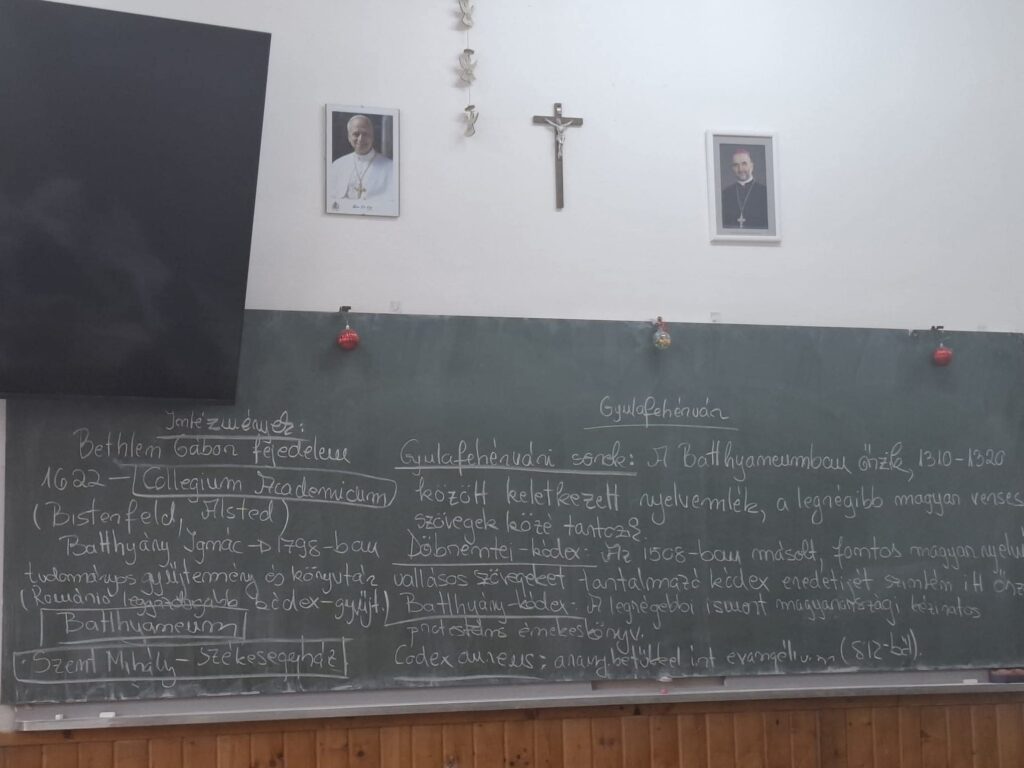 Gyulafehérvár
Intézmények:
Bethlem Gábor fejedelem
1622 – Collegium Academicum
(Bistenfeld, Alsted)
Batthyány Ignác → 1798-ban
tudományos gyűjtemény és könyvtár
(Románia kódex-gyűjt.)
Batthyáneum
Szent Mihály – Székesegyház
Gyulafehérvári sorok: A Batthyaneumban őrzik, 1310–1320
között keletkezett nyelvemlék, a legrégibb magyar verses
szövegek közé tartozik.
Döbrentei-kódex: Az 1508-ban másolt, fontos magyar nyelvű
vallásos szövegeket tartalmazó kódex eredetijét szintén itt
Batthyány-kódex: A legrégebbi ismert magyarországi kéziratos
protestáns énekeskönyv.
Codex aureus: arany betűkkel írt evangélium (812-ből).